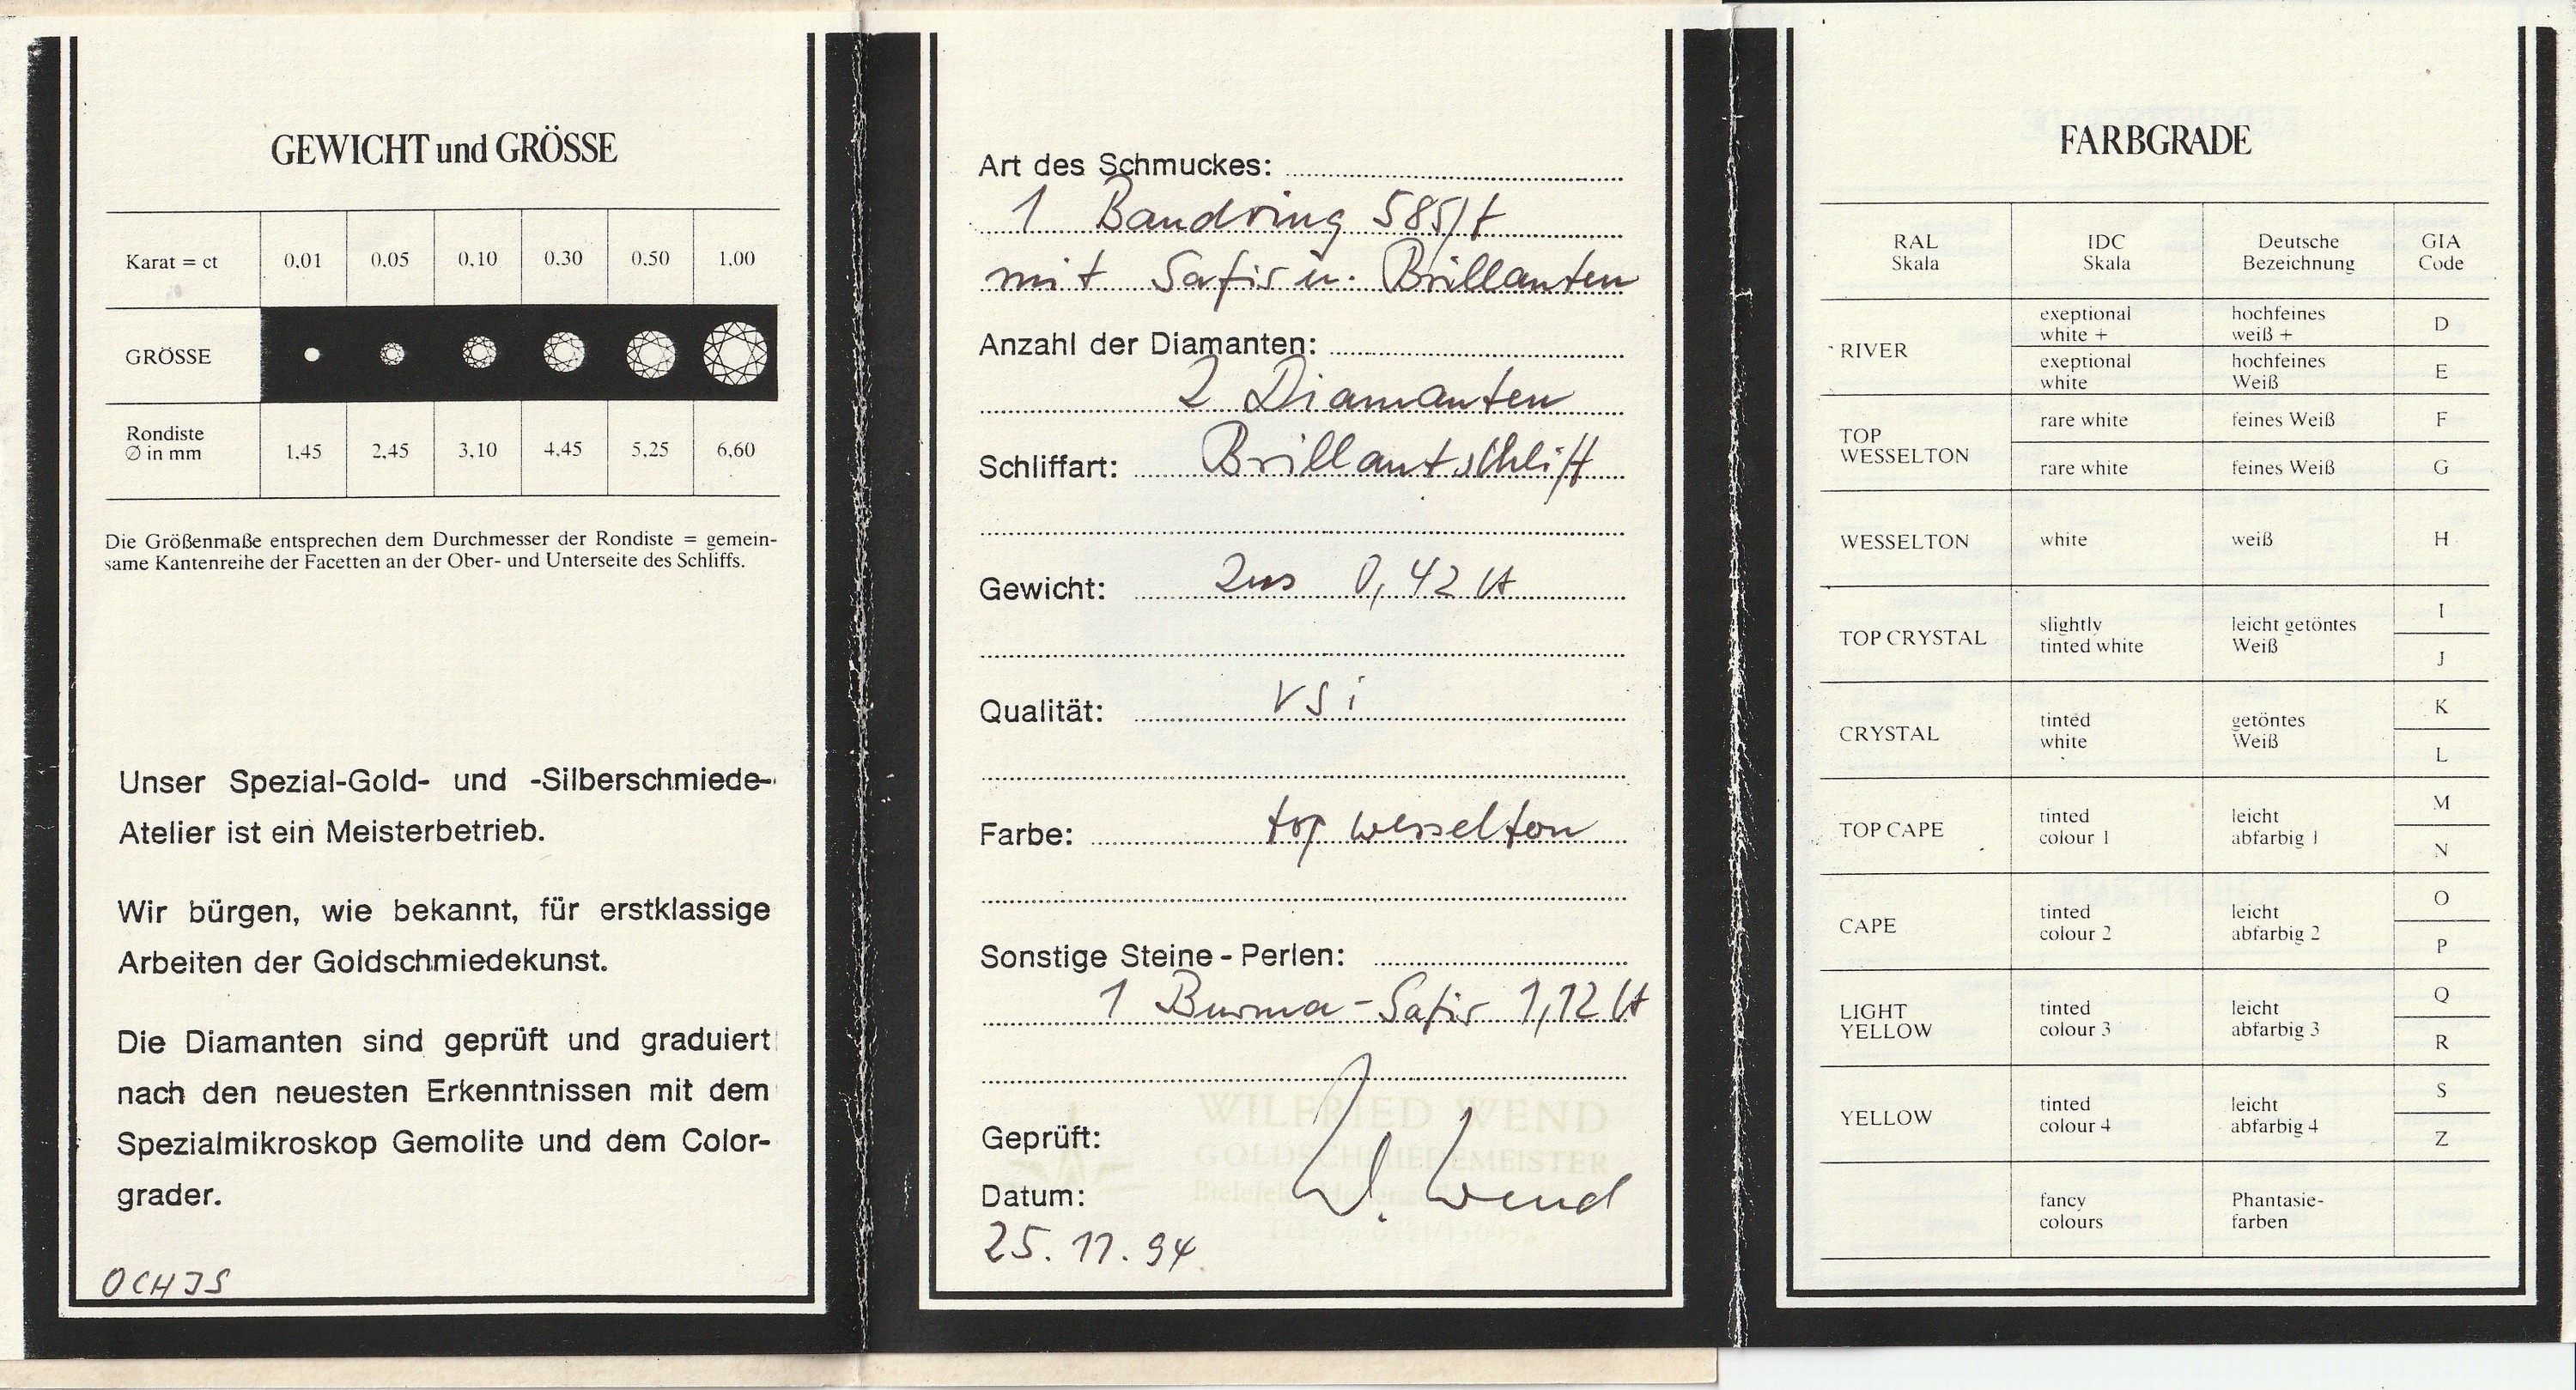 GEWICHT und GRÖSSE
Karat = ct 0,01 0,05 0,10 0,30 0,50 1,00
GRÖSSE
Rondiste
∅ in mm 1,45 2,45 3,10 4,45 5,25 6,60
Die Größenmaße entsprechen dem Durchmesser der Rondiste = gemein-
same Kantenreihe der Facetten an der Ober- und Unterseite des Schliffs.
Unser Spezial-Gold- und -Silberschmiede-
Atelier ist ein Meisterbetrieb.
Wir bürgen, wie bekannt, für erstklassige
Arbeiten der Goldschmiedekunst.
Die Diamanten sind geprüft und graduiert
nach den neuesten Erkenntnissen mit dem
Spezialmikroskop Gemolite und dem Color-
grader.
OCHJS
Art des Schmuckes:
1 Bandring 585/f
mit Safir u. Brillanten
Anzahl der Diamanten:
2 Diamanten
Schliffart: Brillantschliff
Gewicht: zus 0,42 ct
Qualität: vsi
Farbe: top wesselton
Sonstige Steine - Perlen:
1 Burma-Safir 1,12 ct
WILFRIED WEND
Geprüft: W. Wend
GOLDSCHMIEDEMEISTER
Datum:
25.11.94
FARBGRADE
RAL IDC Deutsche GIA
Skala Skala Bezeichnung Code
RIVER
exeptional hochfeines
white + weiß + D
exeptional hochfeines
white Weiß E
TOP
WESSELTON
rare white feines Weiß F
rare white feines Weiß G
WESSELTON white weiß H
TOP CRYSTAL
slightly leicht getöntes I
tinted white Weiß J
CRYSTAL
tinted getöntes K
white Weiß L
TOP CAPE
tinted leicht M
colour 1 abfarbig 1 N
CAPE
tinted leicht O
colour 2 abfarbig 2 P
LIGHT
YELLOW
tinted leicht Q
colour 3 abfarbig 3 R
YELLOW
tinted leicht S
colour 4 abfarbig 4 Z
fancy Phantasie-
colours farben